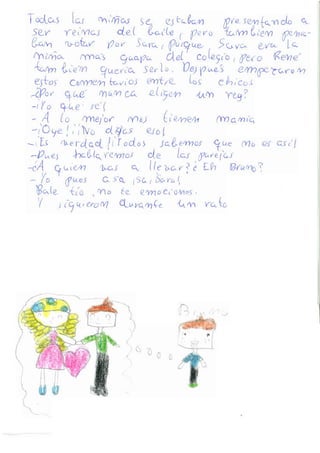 Todas las niñas se estaban presentando a
ser reinas del baile, pero también pensa-
ban votar por Sara, porque, Sara era la
niña mas guapa del colegio, pero René
tambien queria serlo. Despues empezaron
estos comentarios entre los chicos
-¿Por qué nunca eligen un rey?
-¡Yo que sé!
- A lo mejor nos tienen mania
-¡Oye! ¡No digas eso!
-¡Es verdad! ¡Todos sabemos que no es así!
-Pues hablaremos de las parejas
-¿A quien vas a llevar? ¿Eh Bruno?
-Yo pues a sa, sa, Sara!
Bale tío, no te emociones.
Y siguieron durante un rato
Bruno